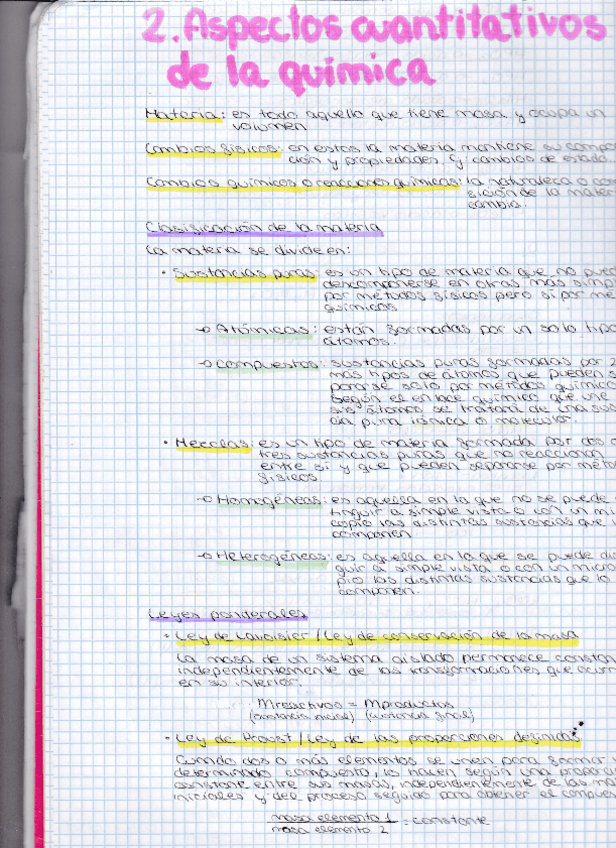 2. Aspectos cuantitativos
de la química
Materia: es todo aquello que tiene masa y ocupa un
volumen
Cambios físicos: en estos la materia mantiene su compo
ción y propiedades. Ej cambios de estado
Cambios químicos o reacciones químicas: la naturaleza o com
sición de la mater
cambia.
Clasificación de la materia
La materia se divide en:
• Sustancias puras: es un tipo de materia que no pue
descomponerse en otras más simp
por métodos físicos pero si por mé
químicos
→ Atómicas: están formadas por un solo tipo
átomos.
→ Compuestos: sustancias puras formadas por 2
más tipos de átomos que pueden s
pararse solo por métodos químico
Según el enlace químico que une
sus átomos se tratará de una sus
cia pura iónica o molecular.
• Mezclas: es un tipo de materia formada por dos o
tres sustancias puras que no reaccionan
entre sí y que pueden separarse por mét
físicos.
→ Homogéneas: es aquella en la que no se puede
tinguir a simple vista o con un mi
copio las distintas sustancias que
componen
→ Heterogéneas: es aquella en la que se puede di
guir a simple vista o con un micro
pio las distintas sustancias que lo
componen.
Leyes ponderales
• Ley de Lavoisier / Ley de conservación de la masa
La masa de un sistema aislado permanece constan
independientemente de las transformaciones que ocurr
en su interior.
Mreactivos = Mproductos
(sustancia inicial) (sustancia final)
• Ley de Proust / Ley de las proporciones definidas
Cuando dos o más elementos se unen para formar u
determinado compuesto, lo hacen según una propor
constante entre sus masas, independientemente de las ma
iniciales y del proceso seguido para obtener el compues
masa elemento 1 = constante
masa elemento 2